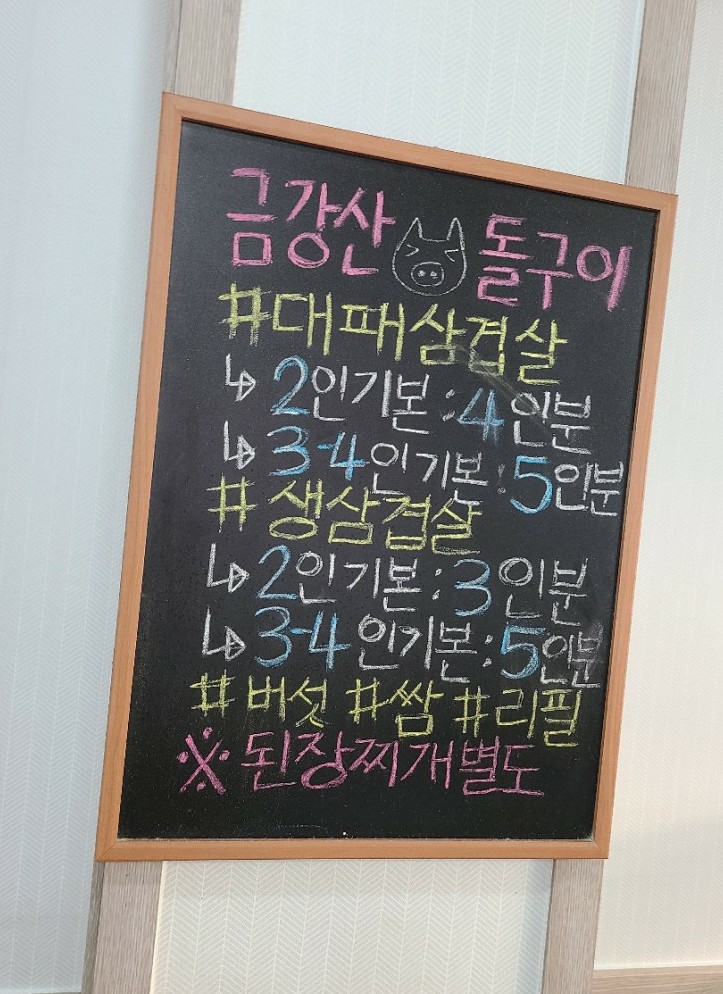 금강산 돌구이
#대패삼겹살
↳ 2인기본 : 4인분
↳ 3-4인기본 : 5인분
# 생삼겹살
↳ 2인기본 : 3인분
↳ 3-4인기본 : 5인분
#버섯 #쌈 #리필
※ 된장찌개별도